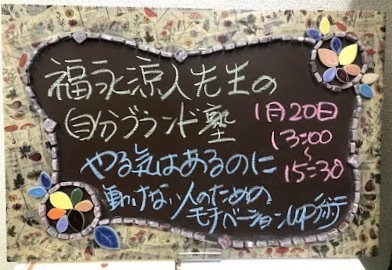 福永涼人先生の
自分ブランド塾
1月20日
13:00
~
15:30
やる気はあるのに
動けない人のための
モチベーションup術